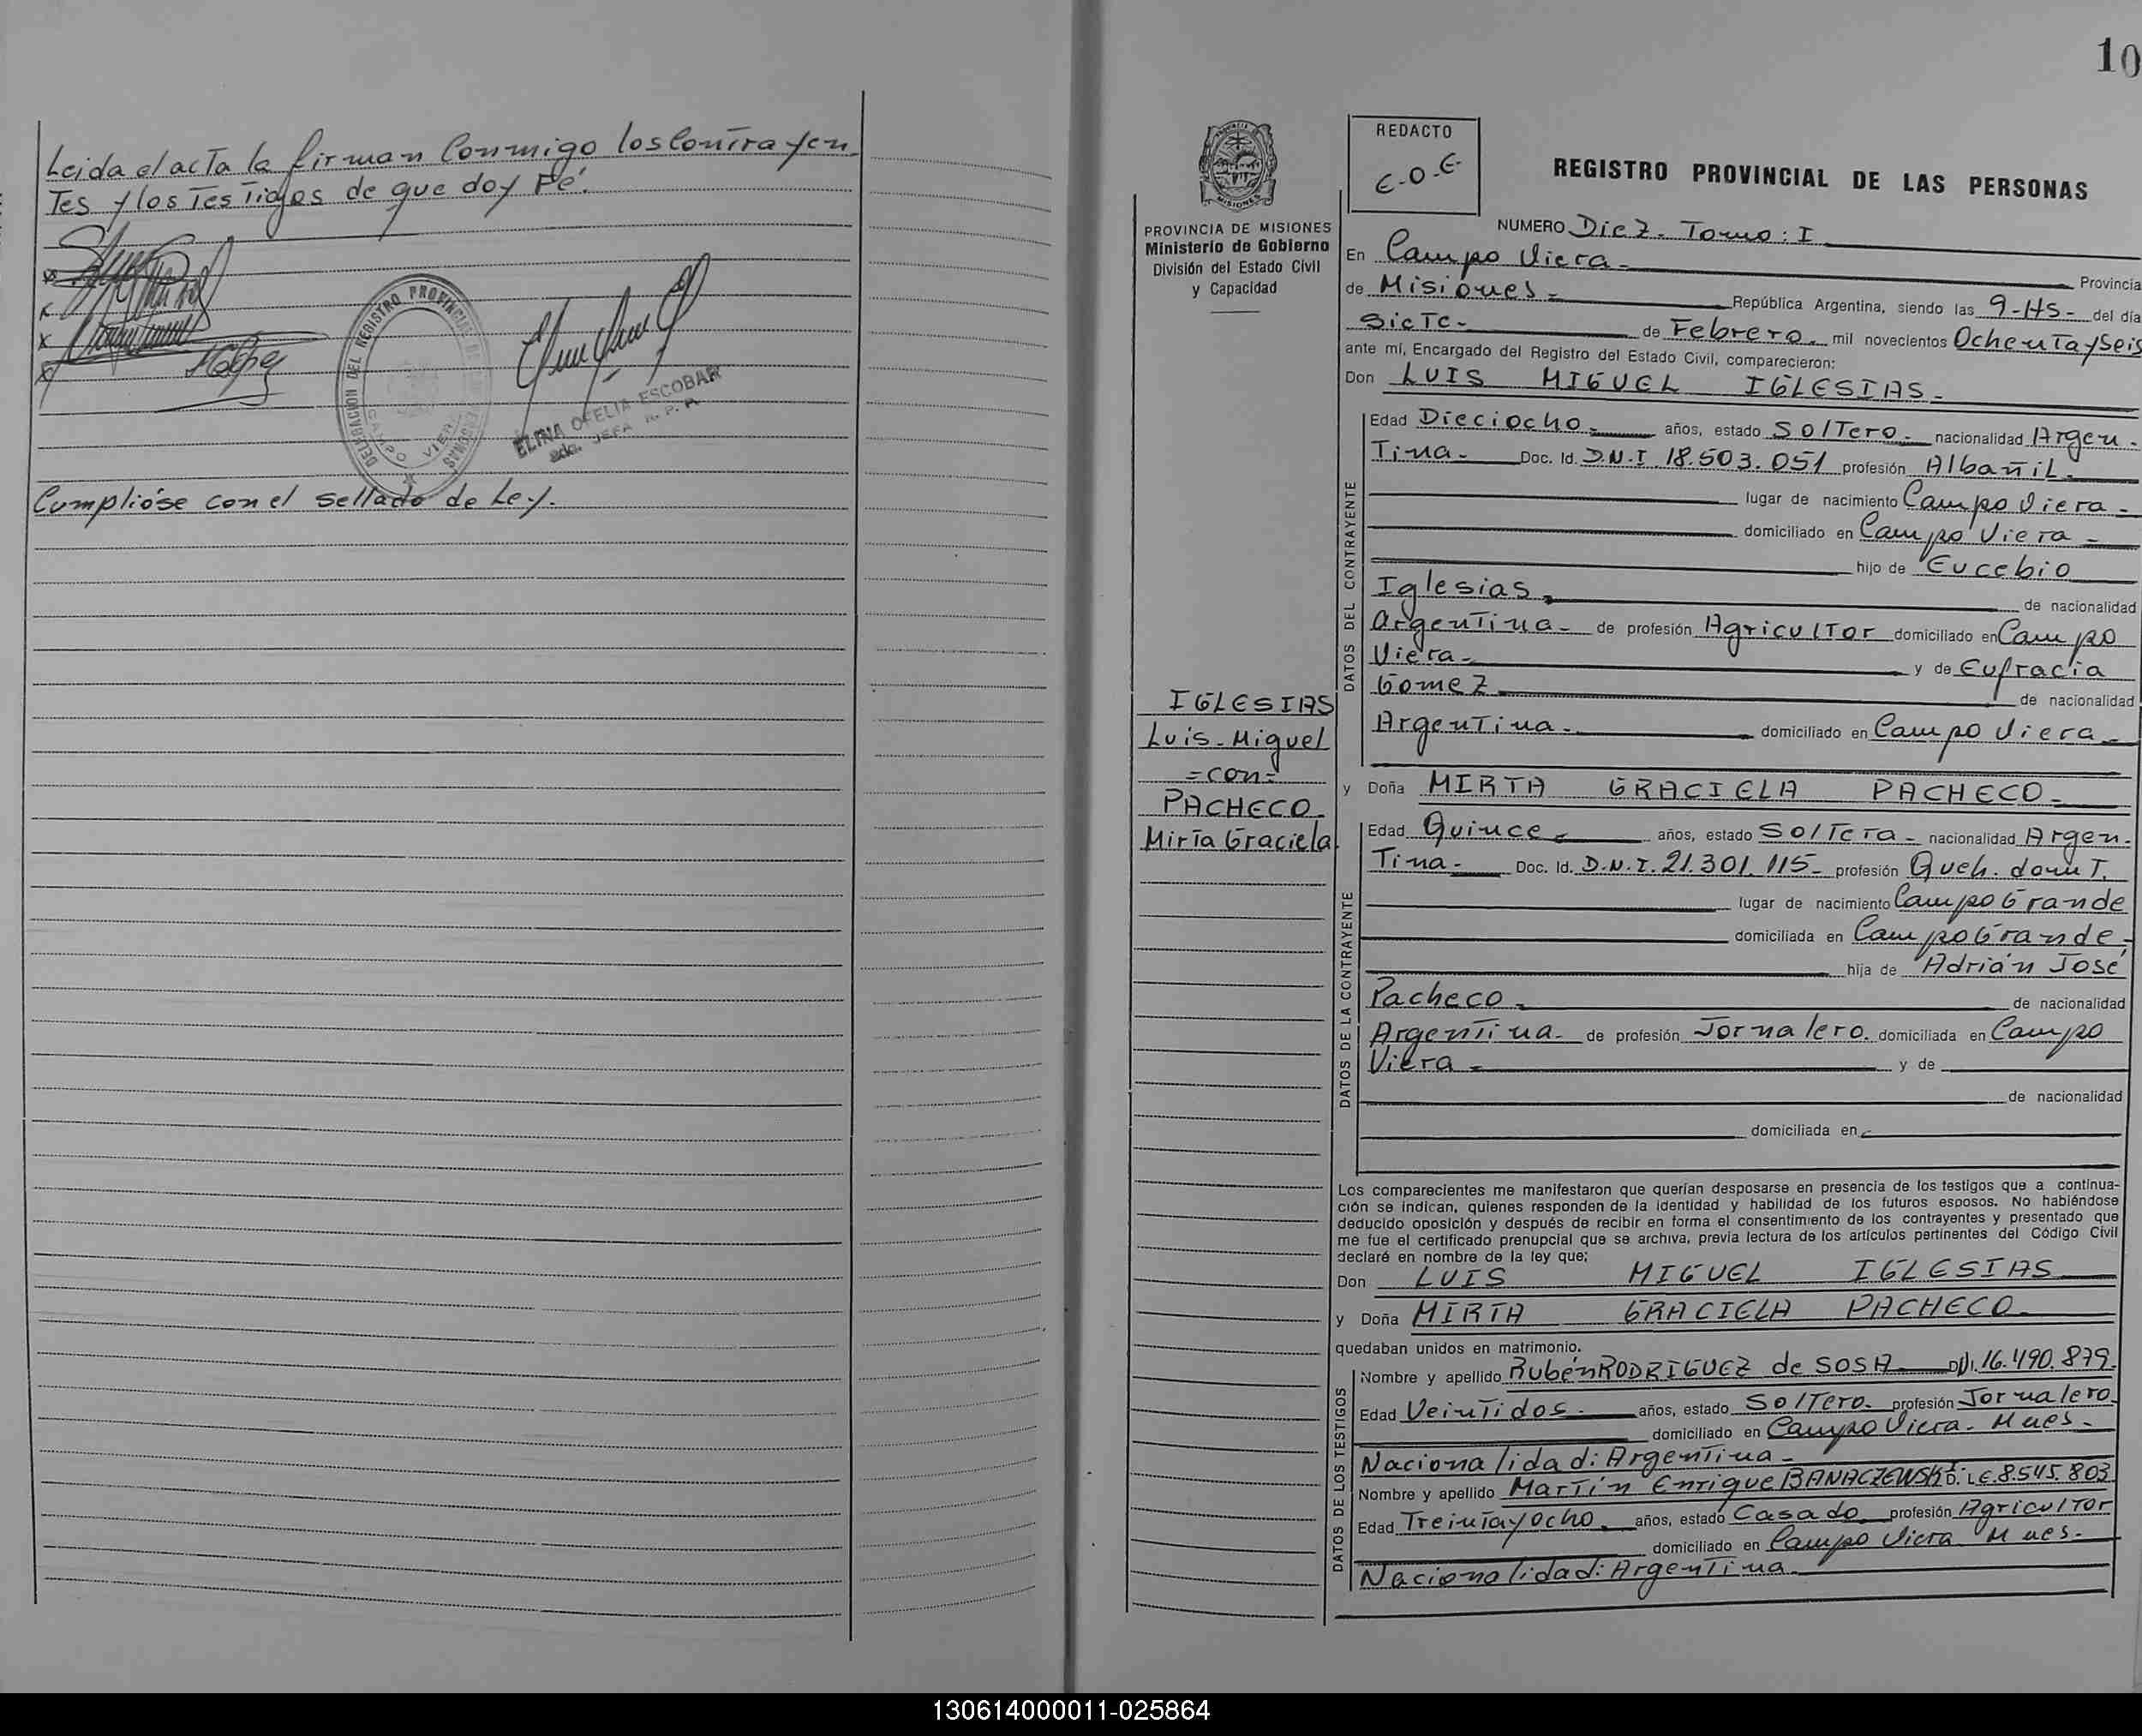 Leida el acta la firman Conmigo los Contrayen
Tes y los Testigos de que doy Fé.
DELEGACION DEL REGISTRO PROVINCIAL DE LAS PERSONAS
CAMPO VIERA
ELINA OFELIA ESCOBAR
JEFA R. P. P.
Cumplióse con el sellado de Ley.
10
PROVINCIA DE MISIONES
Ministerio de Gobierno
División del Estado Civil
y Capacidad
IGLESIAS
Luis-Miguel
=con=
PACHECO
Mirta Graciela
REDACTO
E-O-E
REGISTRO PROVINCIAL DE LAS PERSONAS
NUMERO Diez- Tomo: I
En Campo Viera- Provincia
de Misiones- República Argentina, siendo las 9-HS- del día
Siete- de Febrero. mil novecientos Ochenta y Seis
ante mí, Encargado del Registro del Estado Civil, comparecieron:
Don LUIS MIGUEL IGLESIAS-
DATOS DEL CONTRAYENTE
Edad Dieciocho- años, estado Soltero- nacionalidad Argen-
Tina- Doc. Id. D.N.I. 18.503.051 profesión Albañil-
lugar de nacimiento Campo Viera-
domiciliado en Campo Viera-
hijo de Eucebio
Iglesias- de nacionalidad
argentina- de profesión Agricultor domiciliado en Campo
Viera- y de Eufracia
Gomez- de nacionalidad
Argentina- domiciliado en Campo Viera-
y Doña MIRTA GRACIELA PACHECO-
DATOS DE LA CONTRAYENTE
Edad Quince- años, estado Soltera- nacionalidad Argen-
Tina- Doc. Id. D.N.I. 21.301.115- profesión Queh. domt.
lugar de nacimiento Campo Grande
domiciliada en Campo Grande-
hija de Adrián José
Pacheco- de nacionalidad
Argentina- de profesión Jornalero. domiciliada en Campo
Viera- y de
de nacionalidad
domiciliada en
Los comparecientes me manifestaron que querían desposarse en presencia de los testigos que a continua-
ción se indican, quienes responden de la identidad y habilidad de los futuros esposos. No habiéndose
deducido oposición y después de recibir en forma el consentimiento de los contrayentes y presentado que
me fue el certificado prenupcial que se archiva, previa lectura de los artículos pertinentes del Código Civil
declaré en nombre de la ley que;
Don LUIS MIGUEL IGLESIAS
y Doña MIRTA GRACIELA PACHECO-
quedaban unidos en matrimonio.
DATOS DE LOS TESTIGOS
Nombre y apellido Rubén RODRIGUEZ de SOSA DNI. 16.490.879.
Edad Veintidos- años, estado Soltero. profesión Jornalero
domiciliado en Campo Viera- Mnes-
Nacionalidad: Argentina-
Nombre y apellido Martín Enrique BANACZEWSKI D: L.E. 8.545.803
Edad Treinta y ocho- años, estado Casado profesión Agricultor
domiciliado en Campo Viera Mnes-
Nacionalidad: Argentina
130614000011-025864